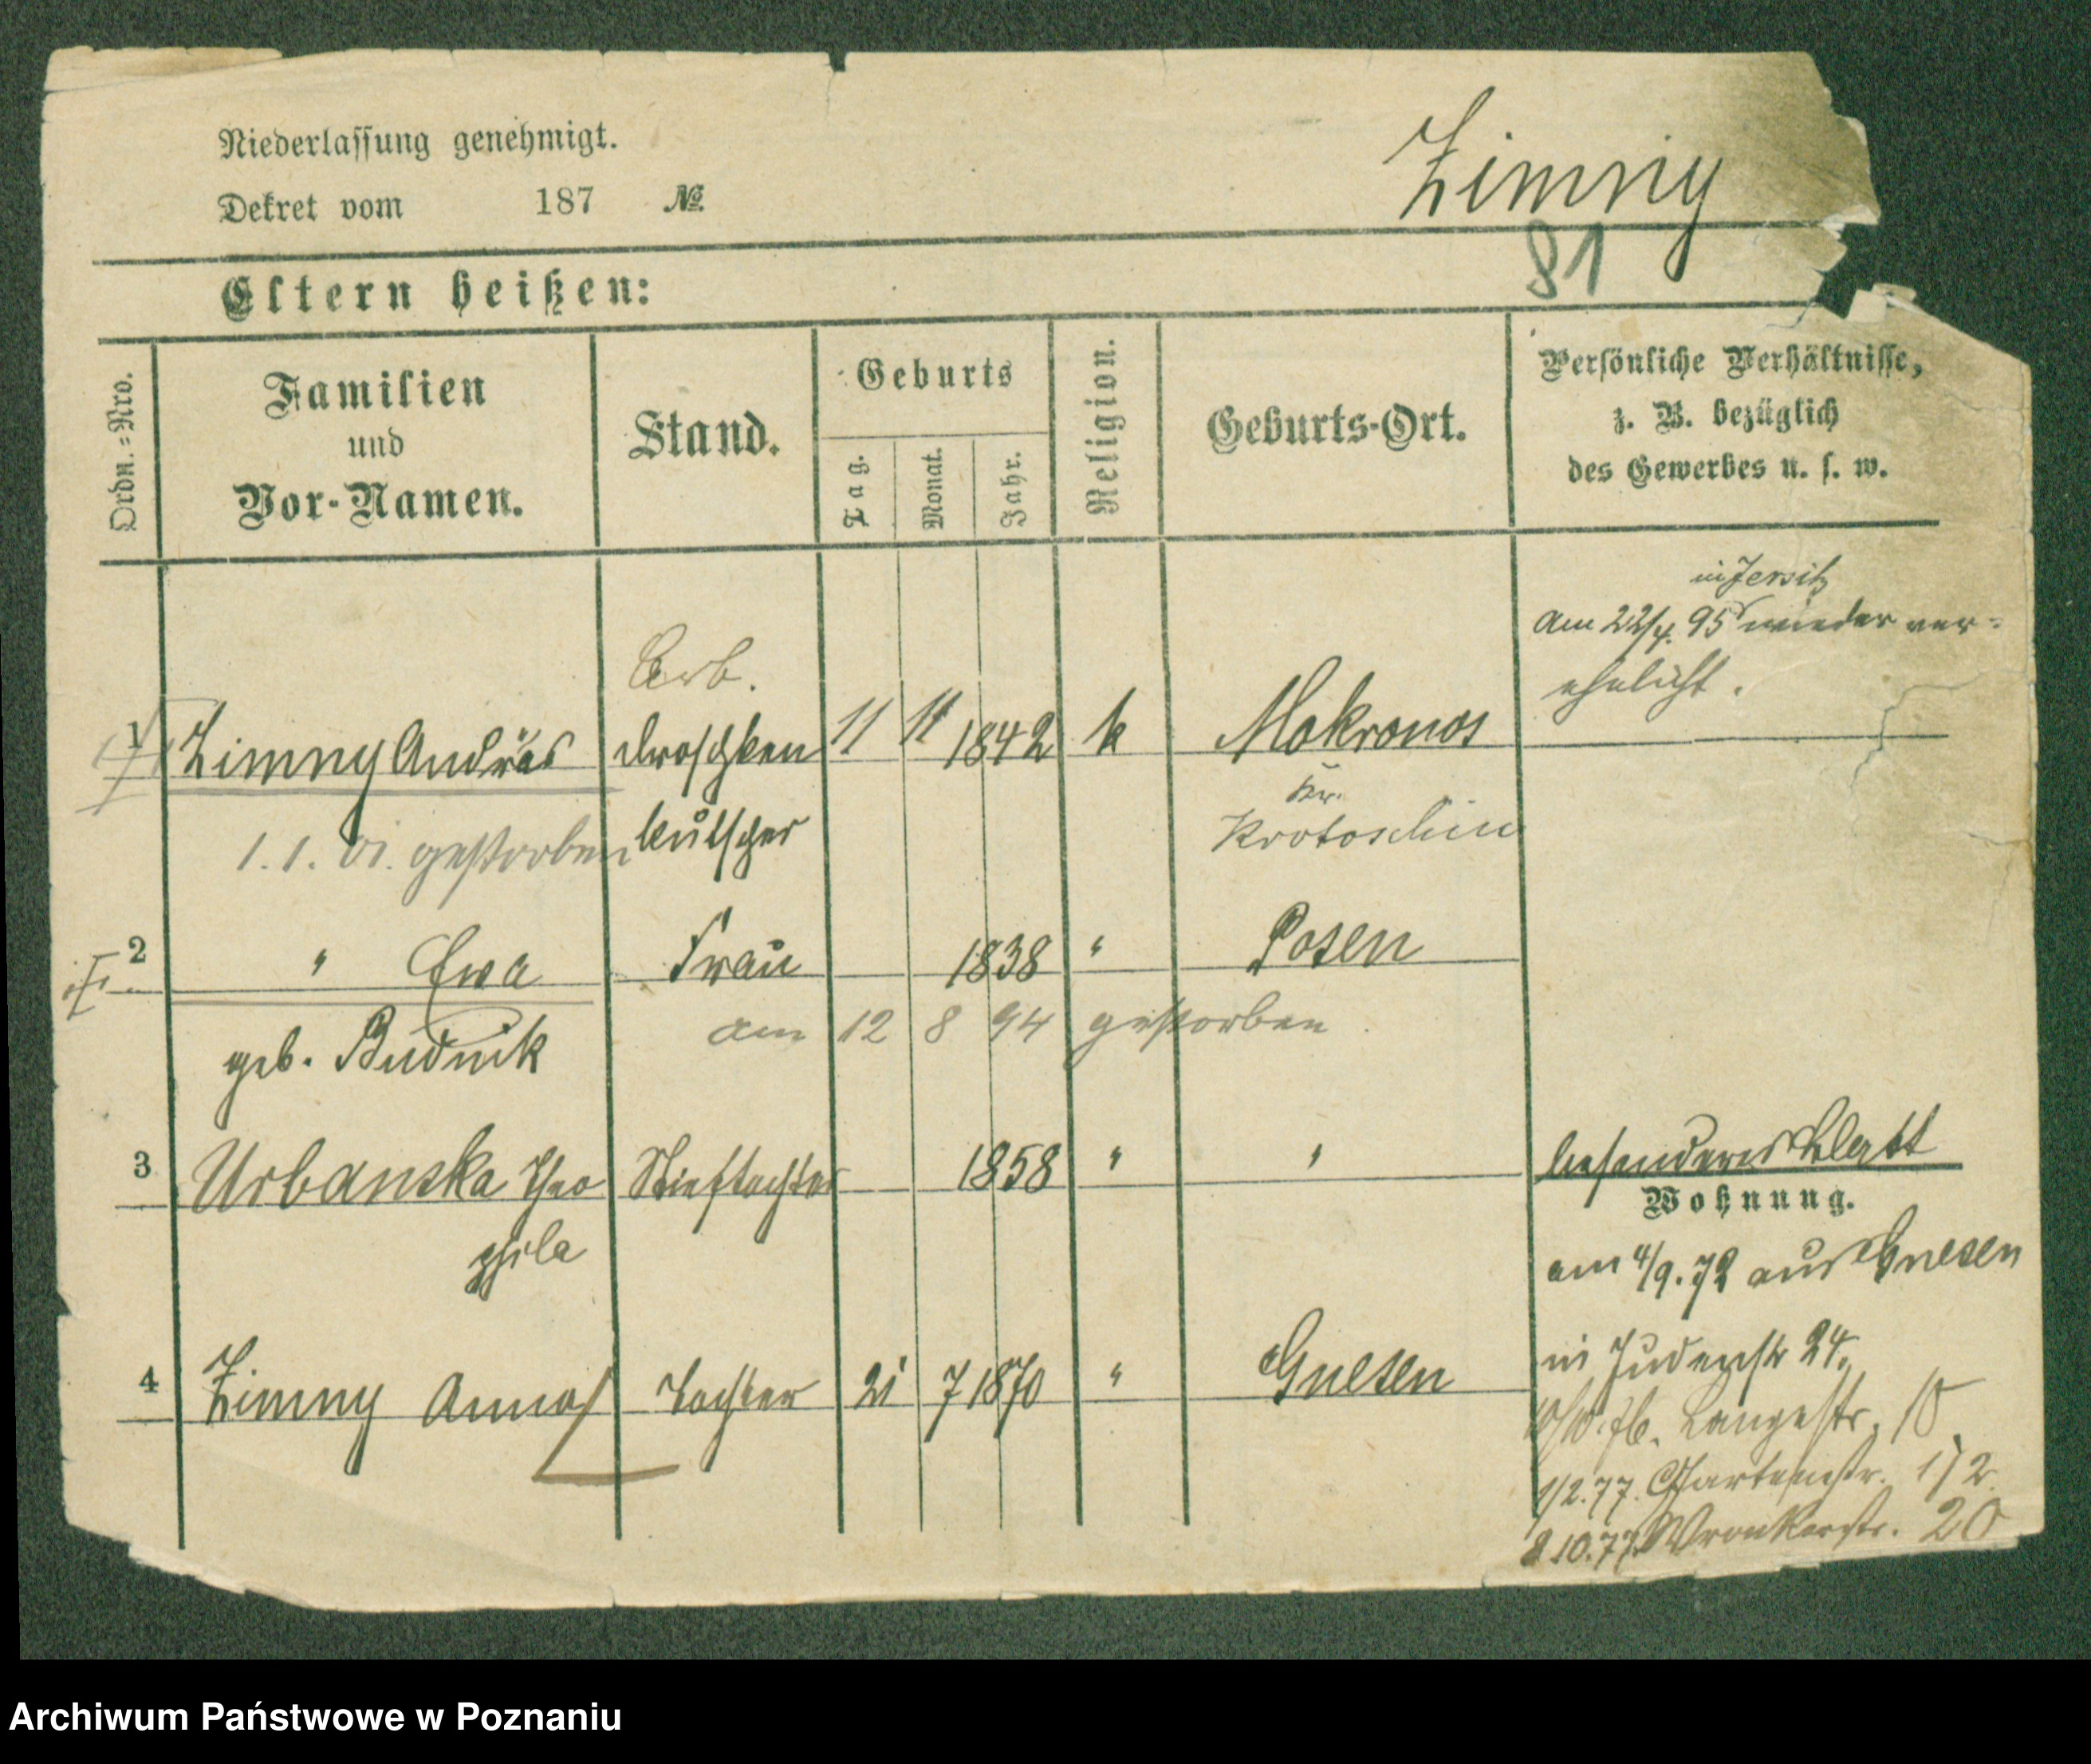 Niederlassung genehmigt.
Zimny
Dekret vom 187 №
81
Eltern heißen:
Ordn.=Nro.
Familien
und
Vor-Namen.
Stand.
Geburts
Tag.
Monat.
Jahr.
Religion.
Geburts-Ort.
Persönliche Verhältnisse,
z. B. bezüglich
des Gewerbes u. s. w.
in Jersitz
am 22/4. 95 wieder ver=
ehelicht.
Arb.
1 Zimny Andreas droschken 11 11 1842 k Mokronos
Kr.
1. 1. gestorben kutscher Krotoschin
2 " Ewa Frau 1838 " Posen
am 12 8 94 gestorben
geb. Budnik
3 Urbanska Theo Stieftochter 1858 " " besonderes Blatt
phila
Wohnung.
am 4/9. 72 aus Gnesen
4 Zimny Anna Tochter 21 7 1870 " Gnesen
in Judenstr 24.
76. Langestr. 10
1/2. 77. Gartenstr. 172
8 10. 77 Wronkerstr. 20
Archiwum Państwowe w Poznaniu